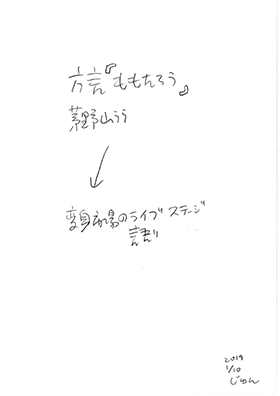 方言『ももたろう』
茅野山ララ
変身市場のライブステージ
言語
2019
1/10
じゅん